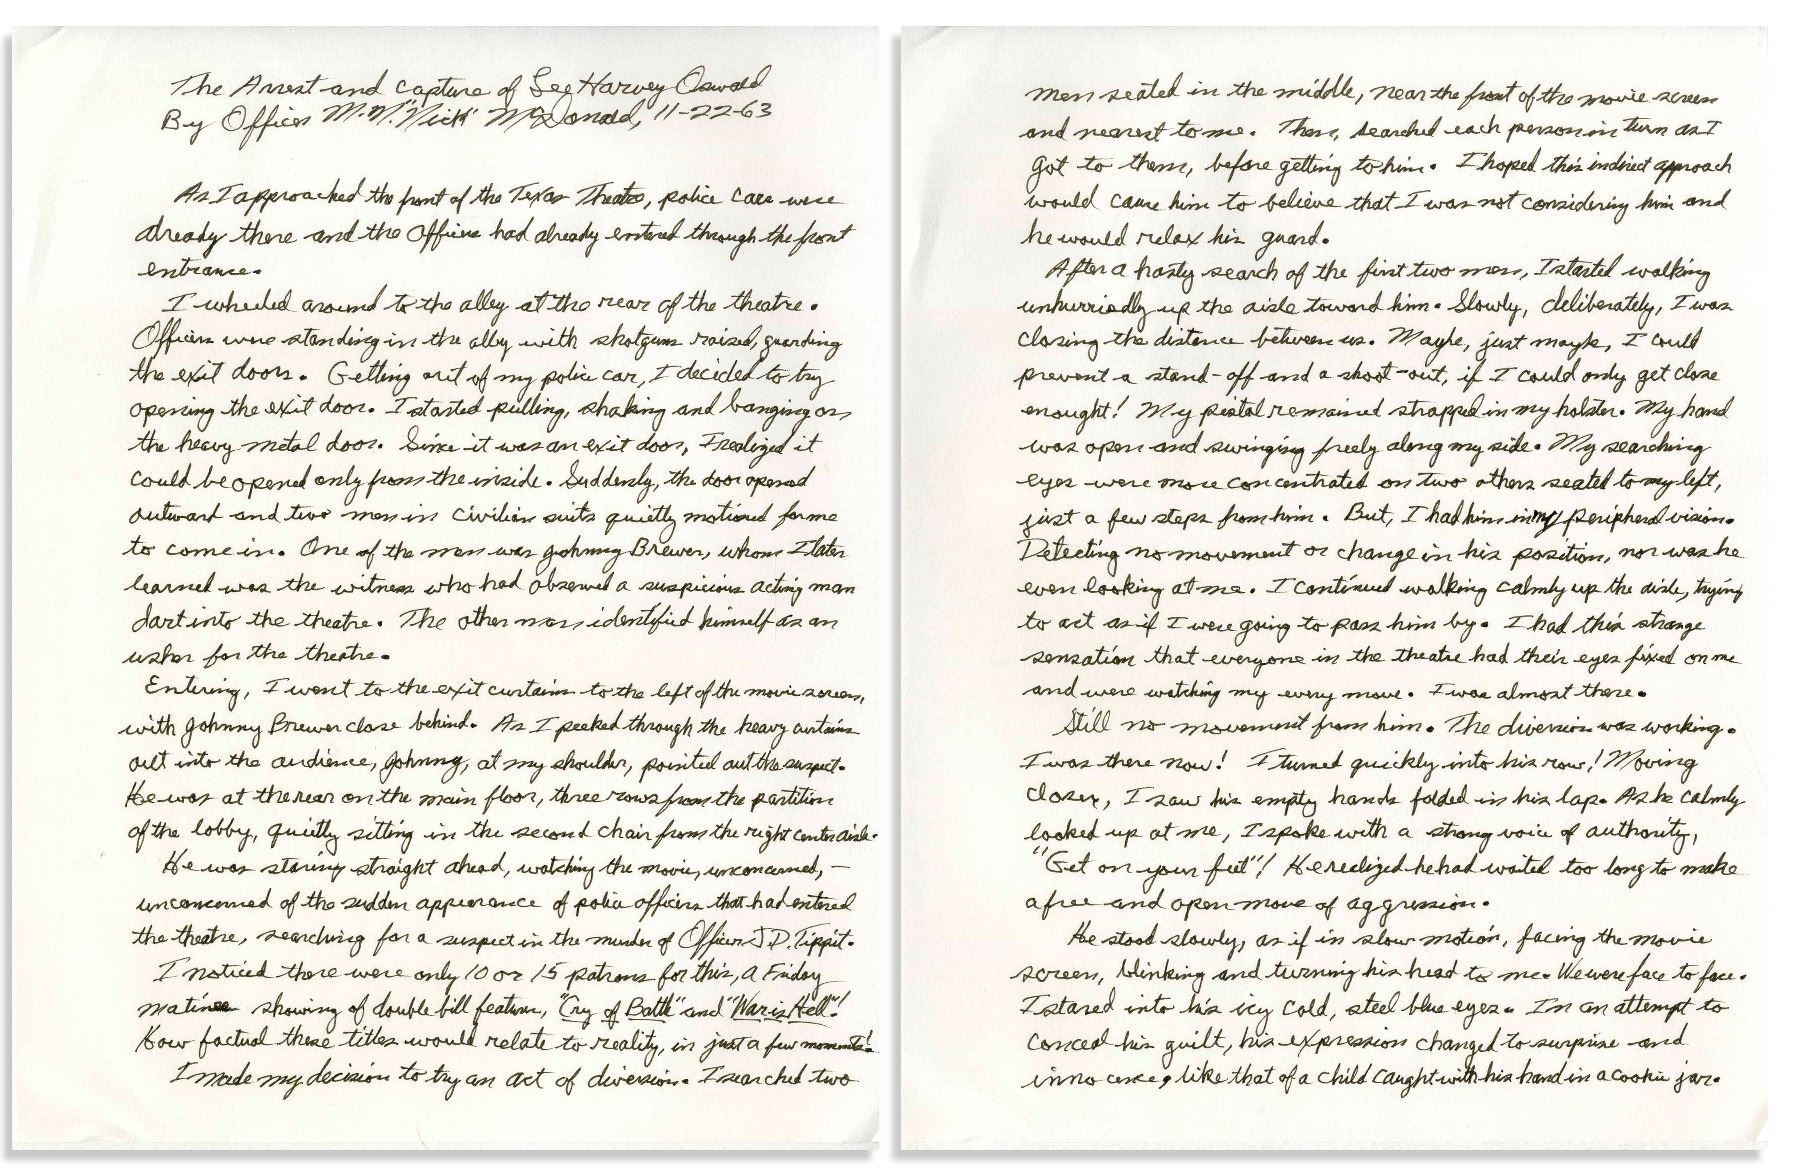 The Arrest and Capture of Lee Harvey Oswald
By Officer M.N. "Nick" McDonald, 11-22-63
As I approached the front of the Texas Theatre, police cars were
already there and the officers had already entered through the front
entrance.
I wheeled around to the alley at the rear of the theatre.
Officers were standing in the alley with shotguns raised, guarding
the exit doors. Getting out of my police car, I decided to try
opening the exit door. I started pulling, shaking and banging on
the heavy metal door. Since it was an exit door, I realized it
could be opened only from the inside. Suddenly, the door opened
outward and two men in civilian suits quietly motioned for me
to come in. One of the men was Johnny Brewer, whom I later
learned was the witness who had observed a suspicious acting man
dart into the theatre. The other man identified himself as an
usher for the theatre.
Entering, I went to the exit curtains to the left of the movie screen,
with Johnny Brewer close behind. As I peeked through the heavy curtains
out into the audience, Johnny, at my shoulder, pointed out the suspect.
He was at the rear on the main floor, three rows from the partition
of the lobby, quietly sitting in the second chair from the right center aisle.
He was staring straight ahead, watching the movie, unconcerned, —
unconcerned of the sudden appearence of police officers that had entered
the theatre, searching for a suspect in the murder of Officer J.D. Tippit.
I noticed there were only 10 or 15 patrons for this, a Friday
matinee showing of double bill feature, "Cry of Battle" and "War is Hell"!
How factual these titles would relate to reality, in just a few moments!
I made my decision to try an act of diversion. I searched two
men seated in the middle, near the front of the movie screen
and nearest to me. Then, searched each person in turn as I
got to them, before getting to him. I hoped this indirect approach
would cause him to believe that I was not considering him and
he would relax his guard.
After a hasty search of the first two men, I started walking
unhurriedly up the aisle toward him. Slowly, deliberately, I was
closing the distance between us. Maybe, just maybe, I could
prevent a stand-off and a shoot-out, if I could only get close
enought! My pistol remained strapped in my holster. My hand
was open and swinging freely along my side. My searching
eyes were more concentrated on two others seated to my left,
just a few steps from him. But, I had him in my peripheral vision.
Detecting no movement or change in his position, nor was he
even looking at me. I continued walking calmly up the aisle, trying
to act as if I were going to pass him by. I had this strange
sensation that everyone in the theatre had their eyes fixed on me
and were watching my every move. I was almost there.
Still no movement from him. The diversion was working.
I was there now! I turned quickly into his row! Moving
closer, I saw his empty hands folded in his lap. As he calmly
looked up at me, I spoke with a strong voice of authority,
"Get on your feet"! He realized he had waited too long to make
a free and open move of aggression.
He stood slowly, as if in slow motion, facing the movie
screen, blinking and turning his head to me. We were face to face.
I stared into his icy cold, steel blue eyes. In an attempt to
conceal his guilt, his expression changed to surprise and
innocence, like that of a child caught with his hand in a cookie jar.